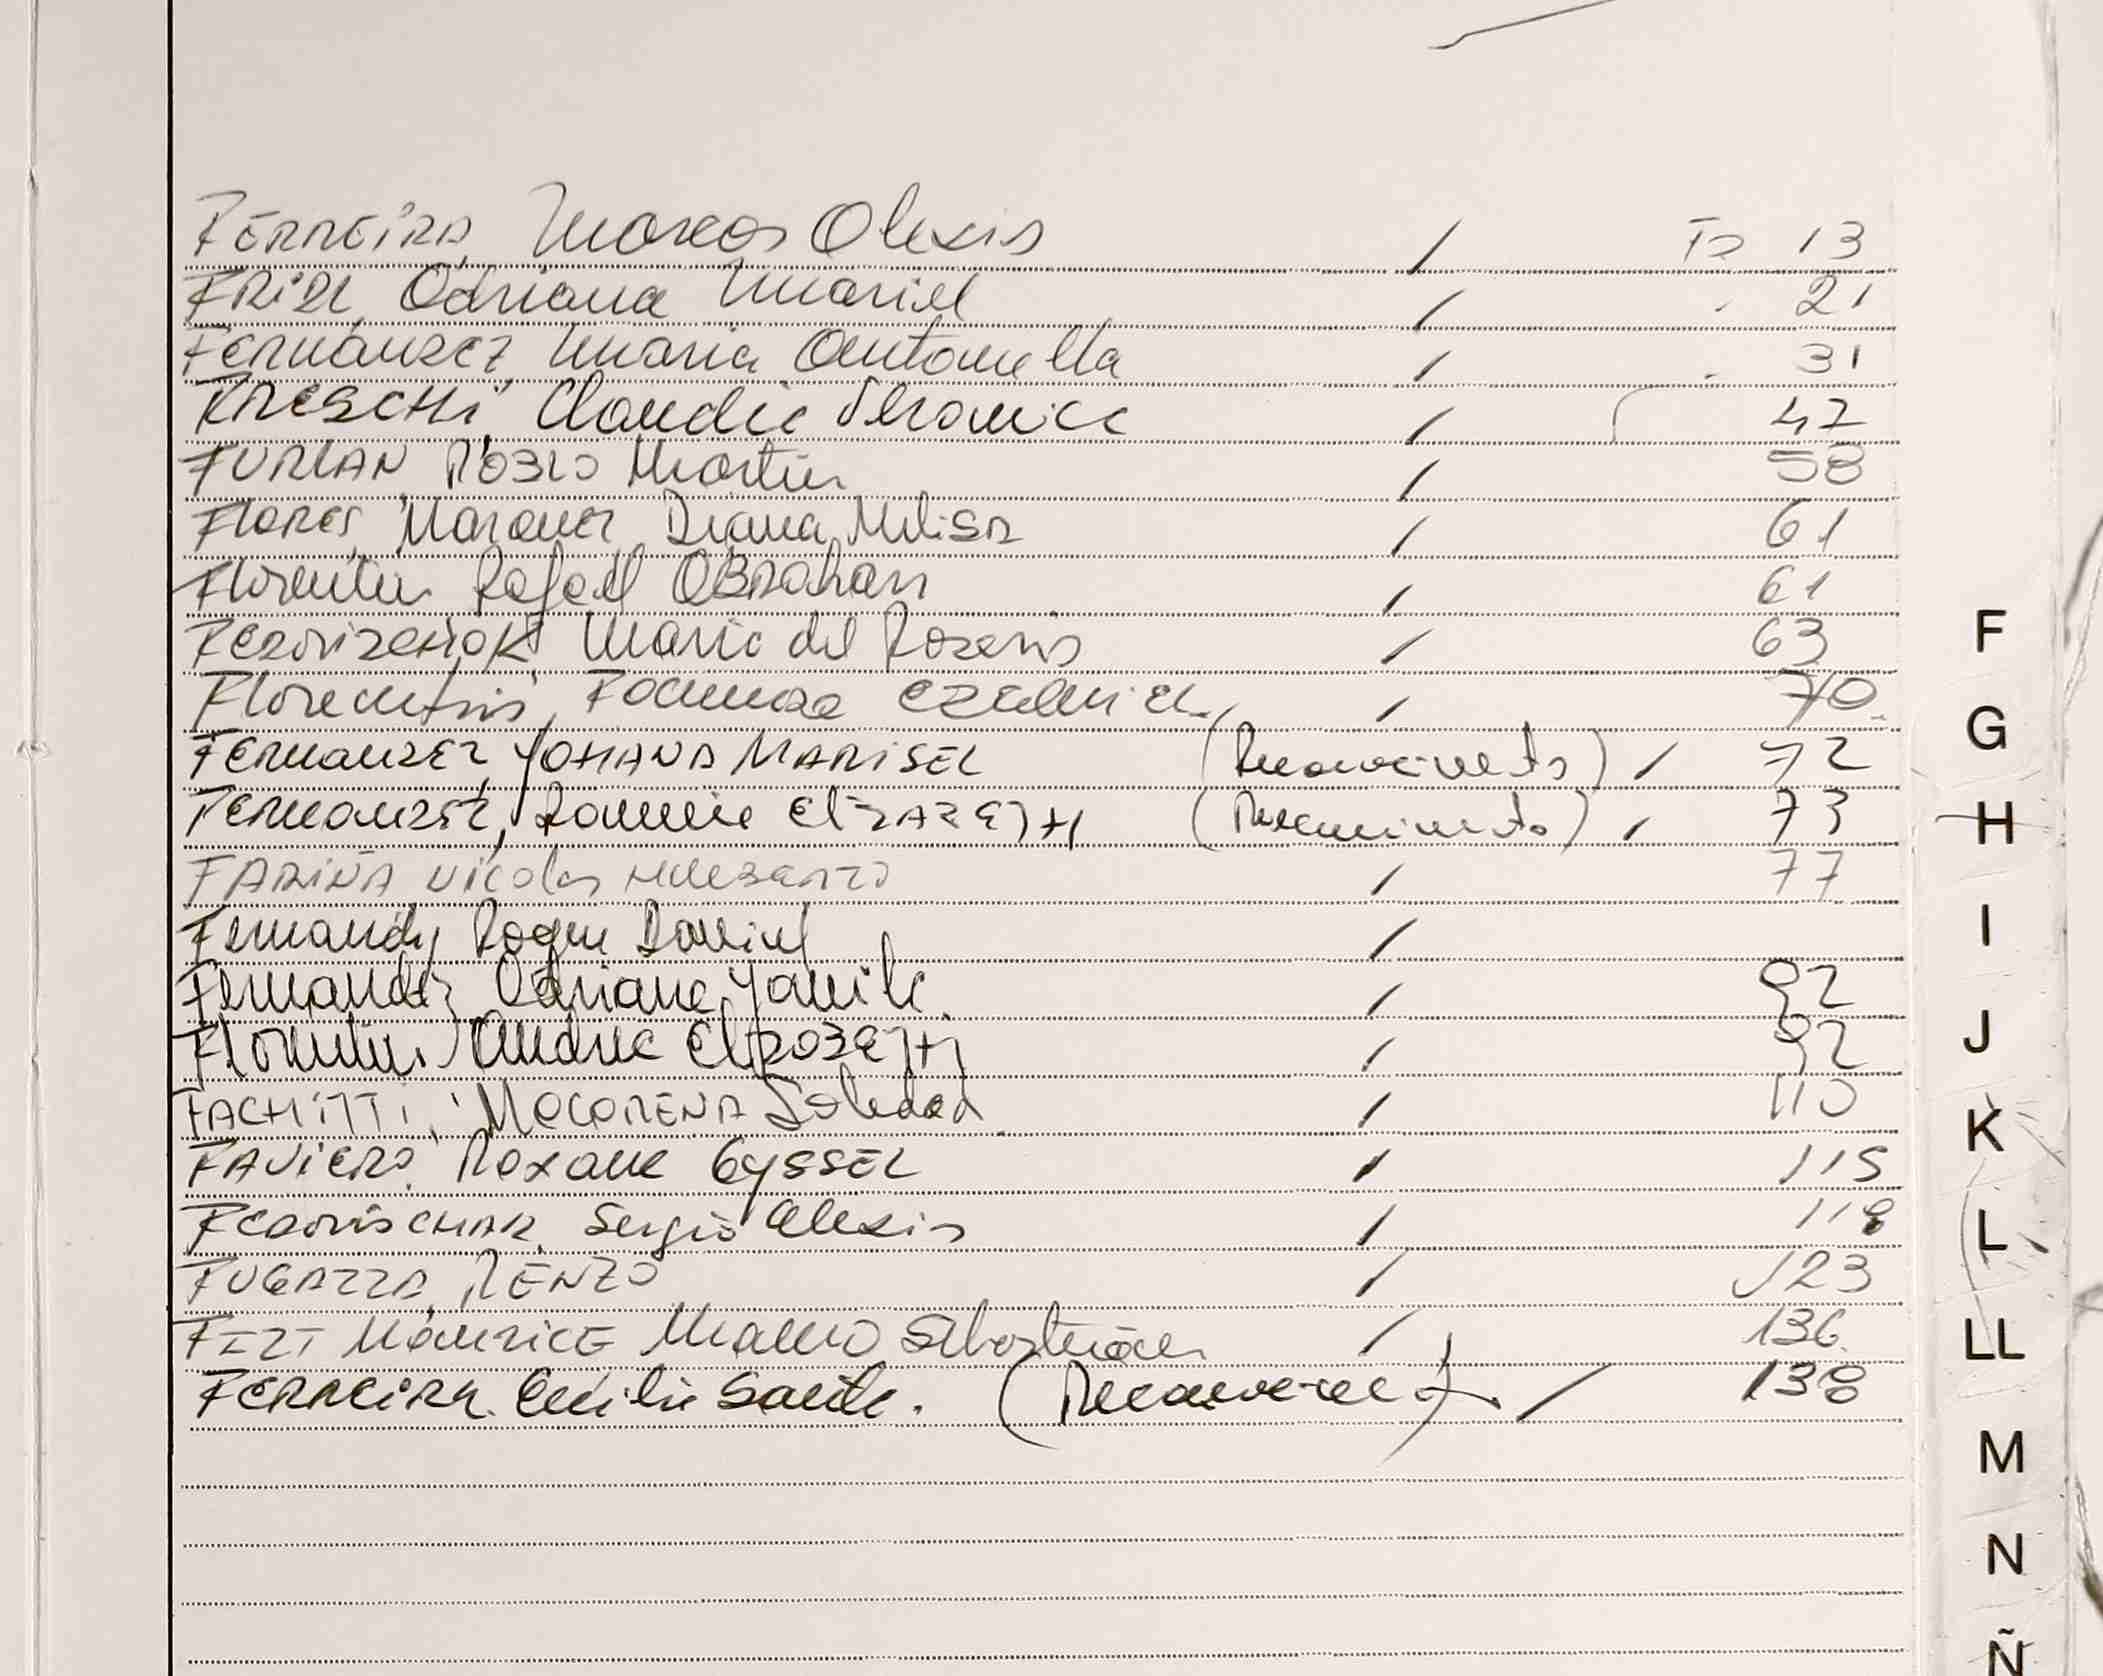 FERREIRA, Marcos Alexis / Fo 13
FRIDL, Adriana Mariel / " 21
Fernández, Maria Antonella / " 31
FRESCHI, Claudia Veronica / 47
FURLAN PABLO Martin / 58
Flores, Marquez Diana Melisa / 61
Florentin Rafael Abraham / 61
Fedorischak Maria del Rosario / 63
Florentin, Facundo Ezequiel / 70
Fernandez, YOHANA MARISEL (Reconocimiento) / 72
Fernandez, Romina Elizabeth (Reconocimiento) / 73
FARIÑA Nicolas / 77
Fernandez Roger Daniel /
Fernandez, Adriana Yamila / 92
Florentin, Andrea Elizabeth / 92
FACHITTI, MACARENA Soledad / 110
FAVIERO, Roxana Gyssel / 115
Sergio Alexis / 118
FUGAZZA, RENZO / 123
Mauricio / 136
FERREIRA. Cecilia (Reconocimiento) / 138
F
G
H
I
J
K
L
LL
M
N
Ñ